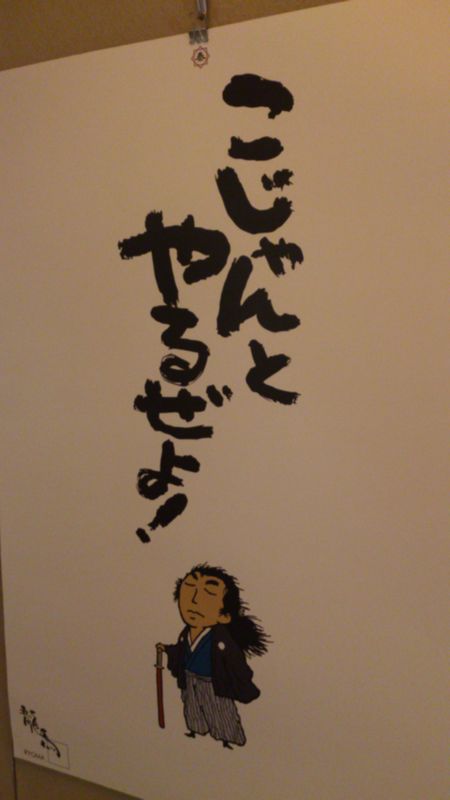 こじゃんと
やるぜよ!
RYOMA